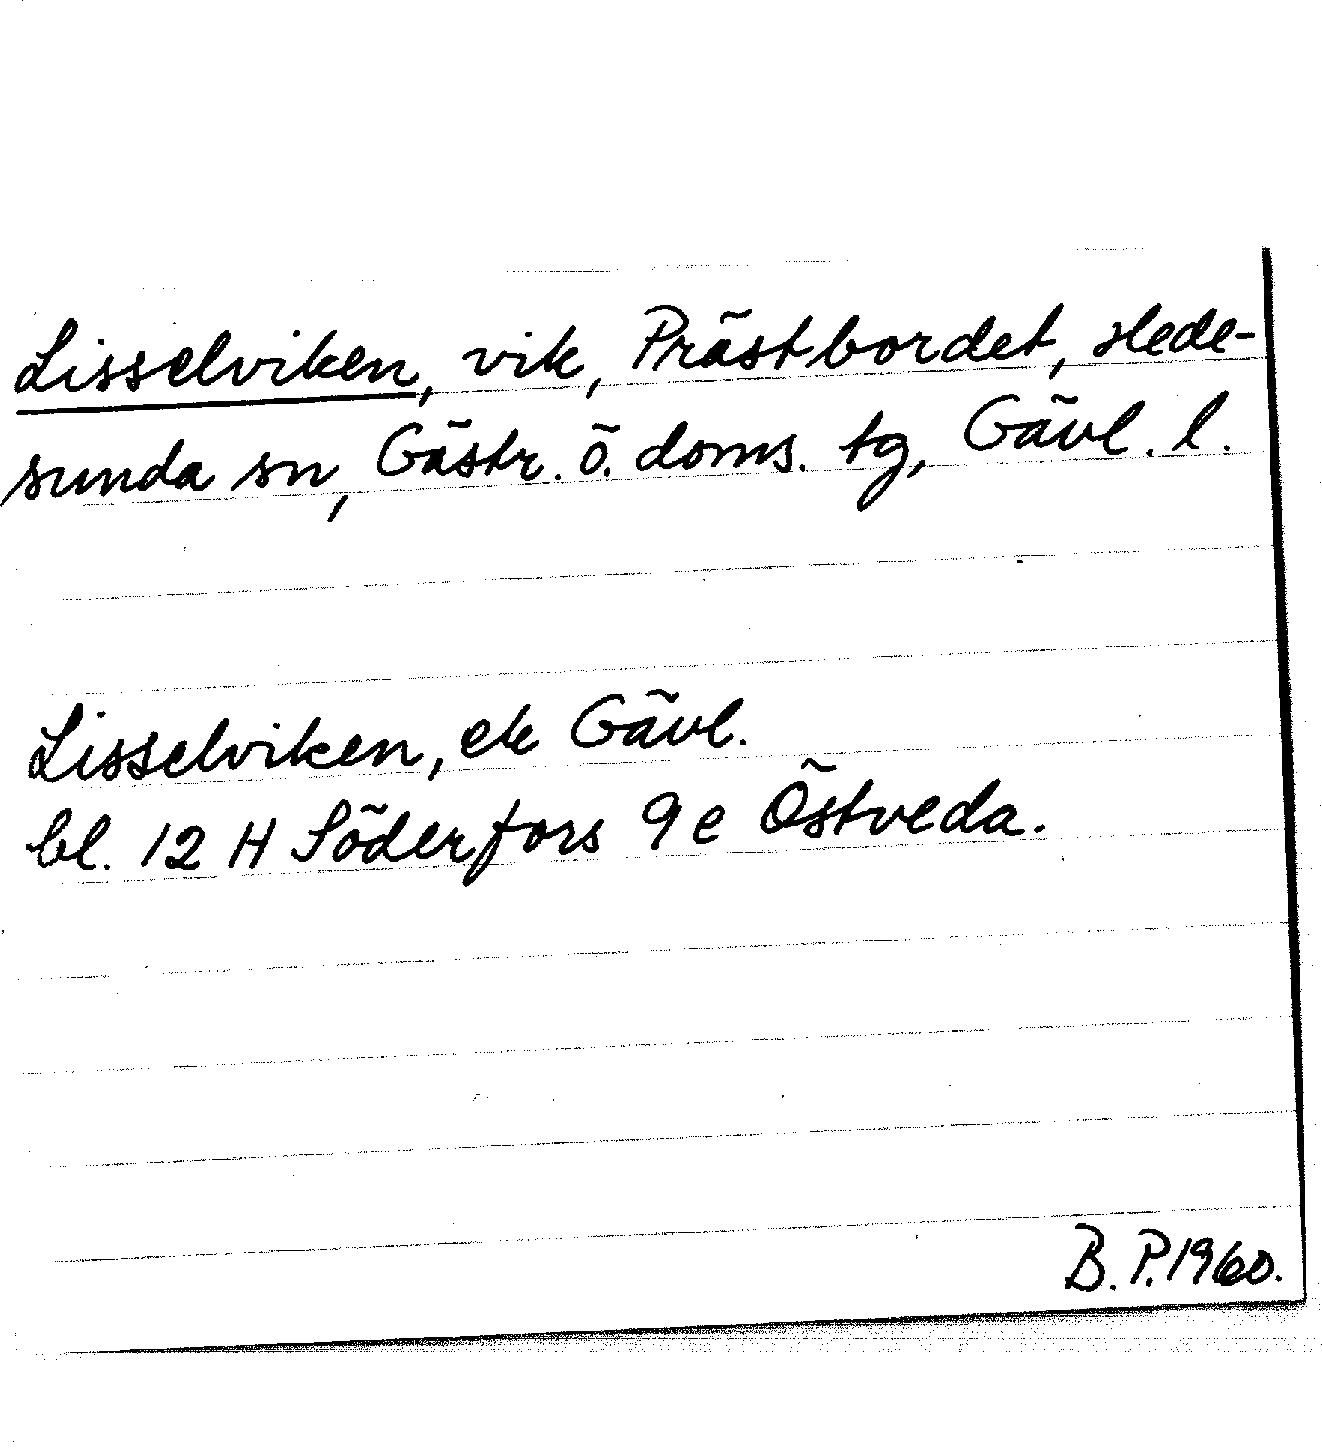 Lisselviken, vik, Prästbordet, Hede-
sunda sn, Gästr. ö. doms. tg, Gävl. l.
Lisselviken, ek Gävl.
bl. 12 H Söderfors 9 e Östveda.
B. P. 1960.